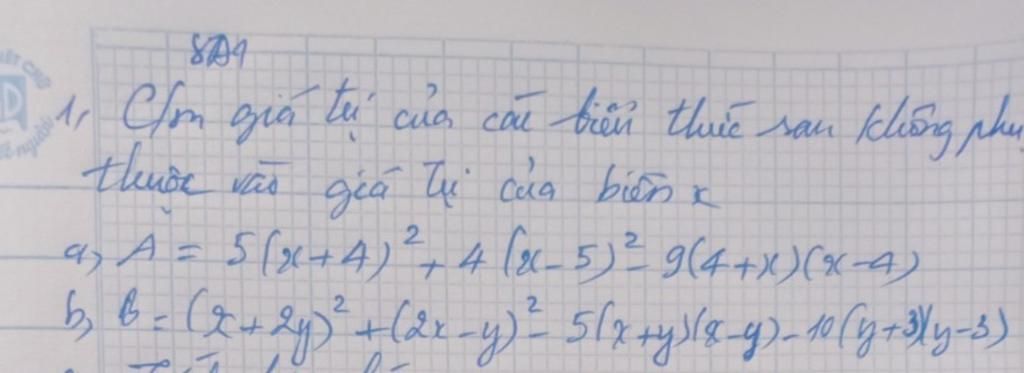 8A1
1, C/m giá trị của các biểu thức sau không phụ
thuộc vào giá trị của biến x
a, A = 5(x+4)² + 4(x-5)² - 9(4+x)(x-4)
b, B = (x+2y)² + (2x-y)² - 5(x+y)(x-y) - 10(y+3)(y-3)